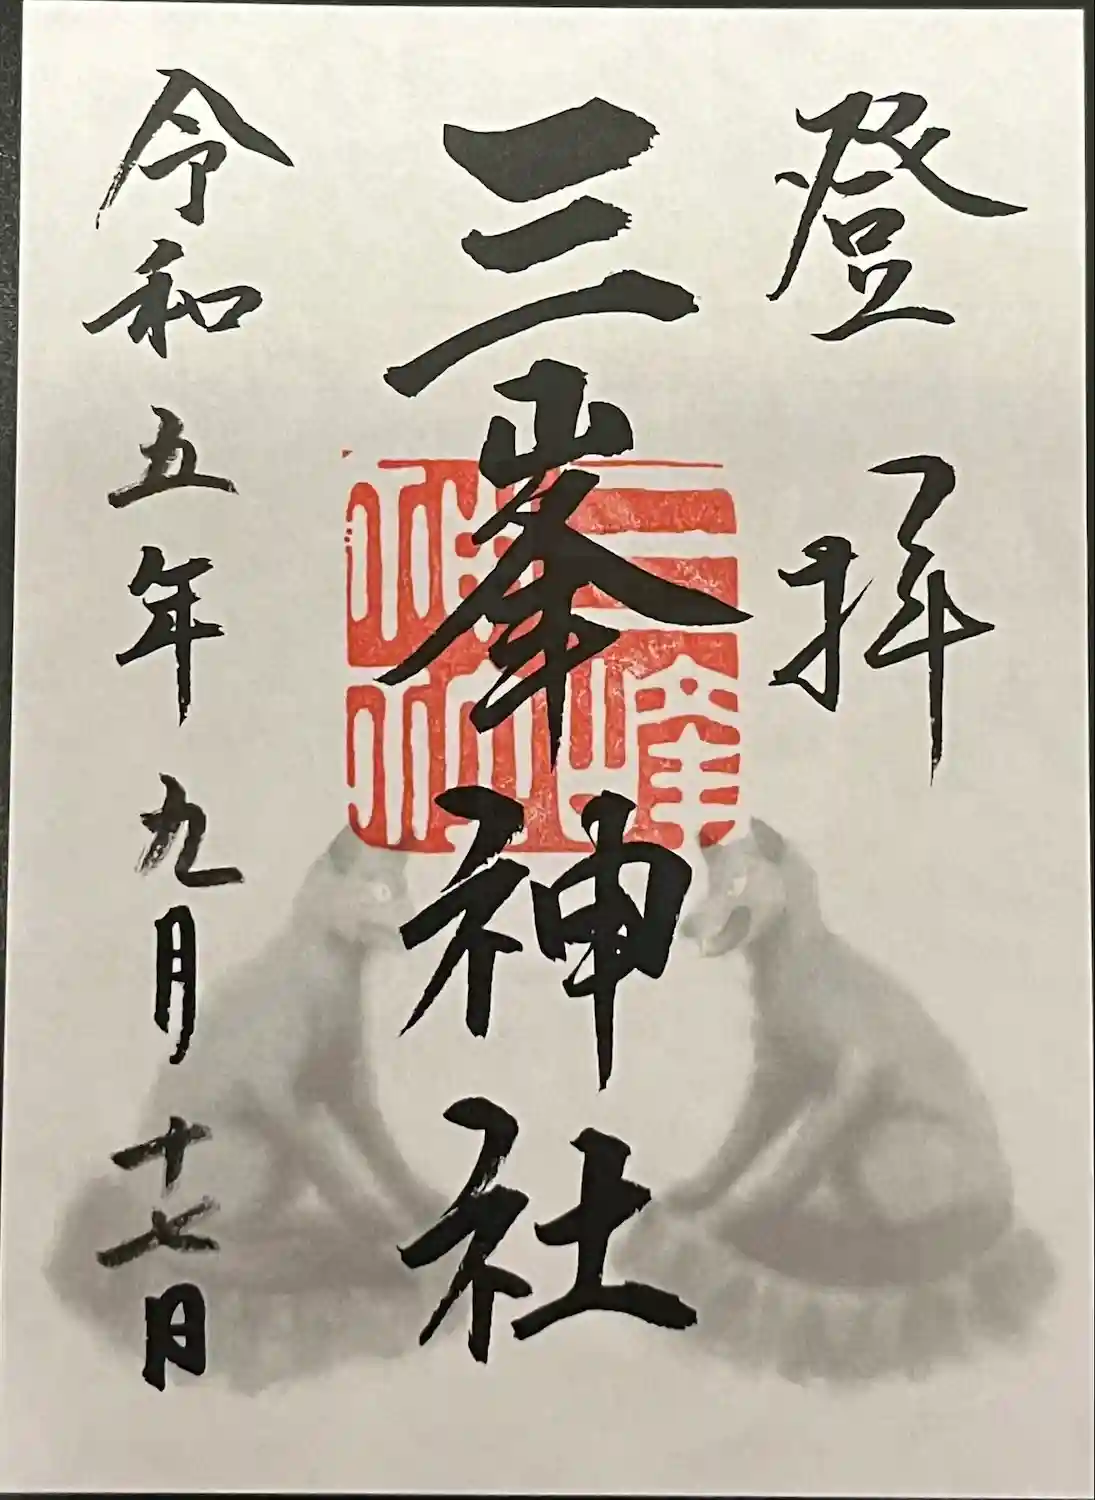 登拝
三峯神社
三峰神社
令和五年九月十七日